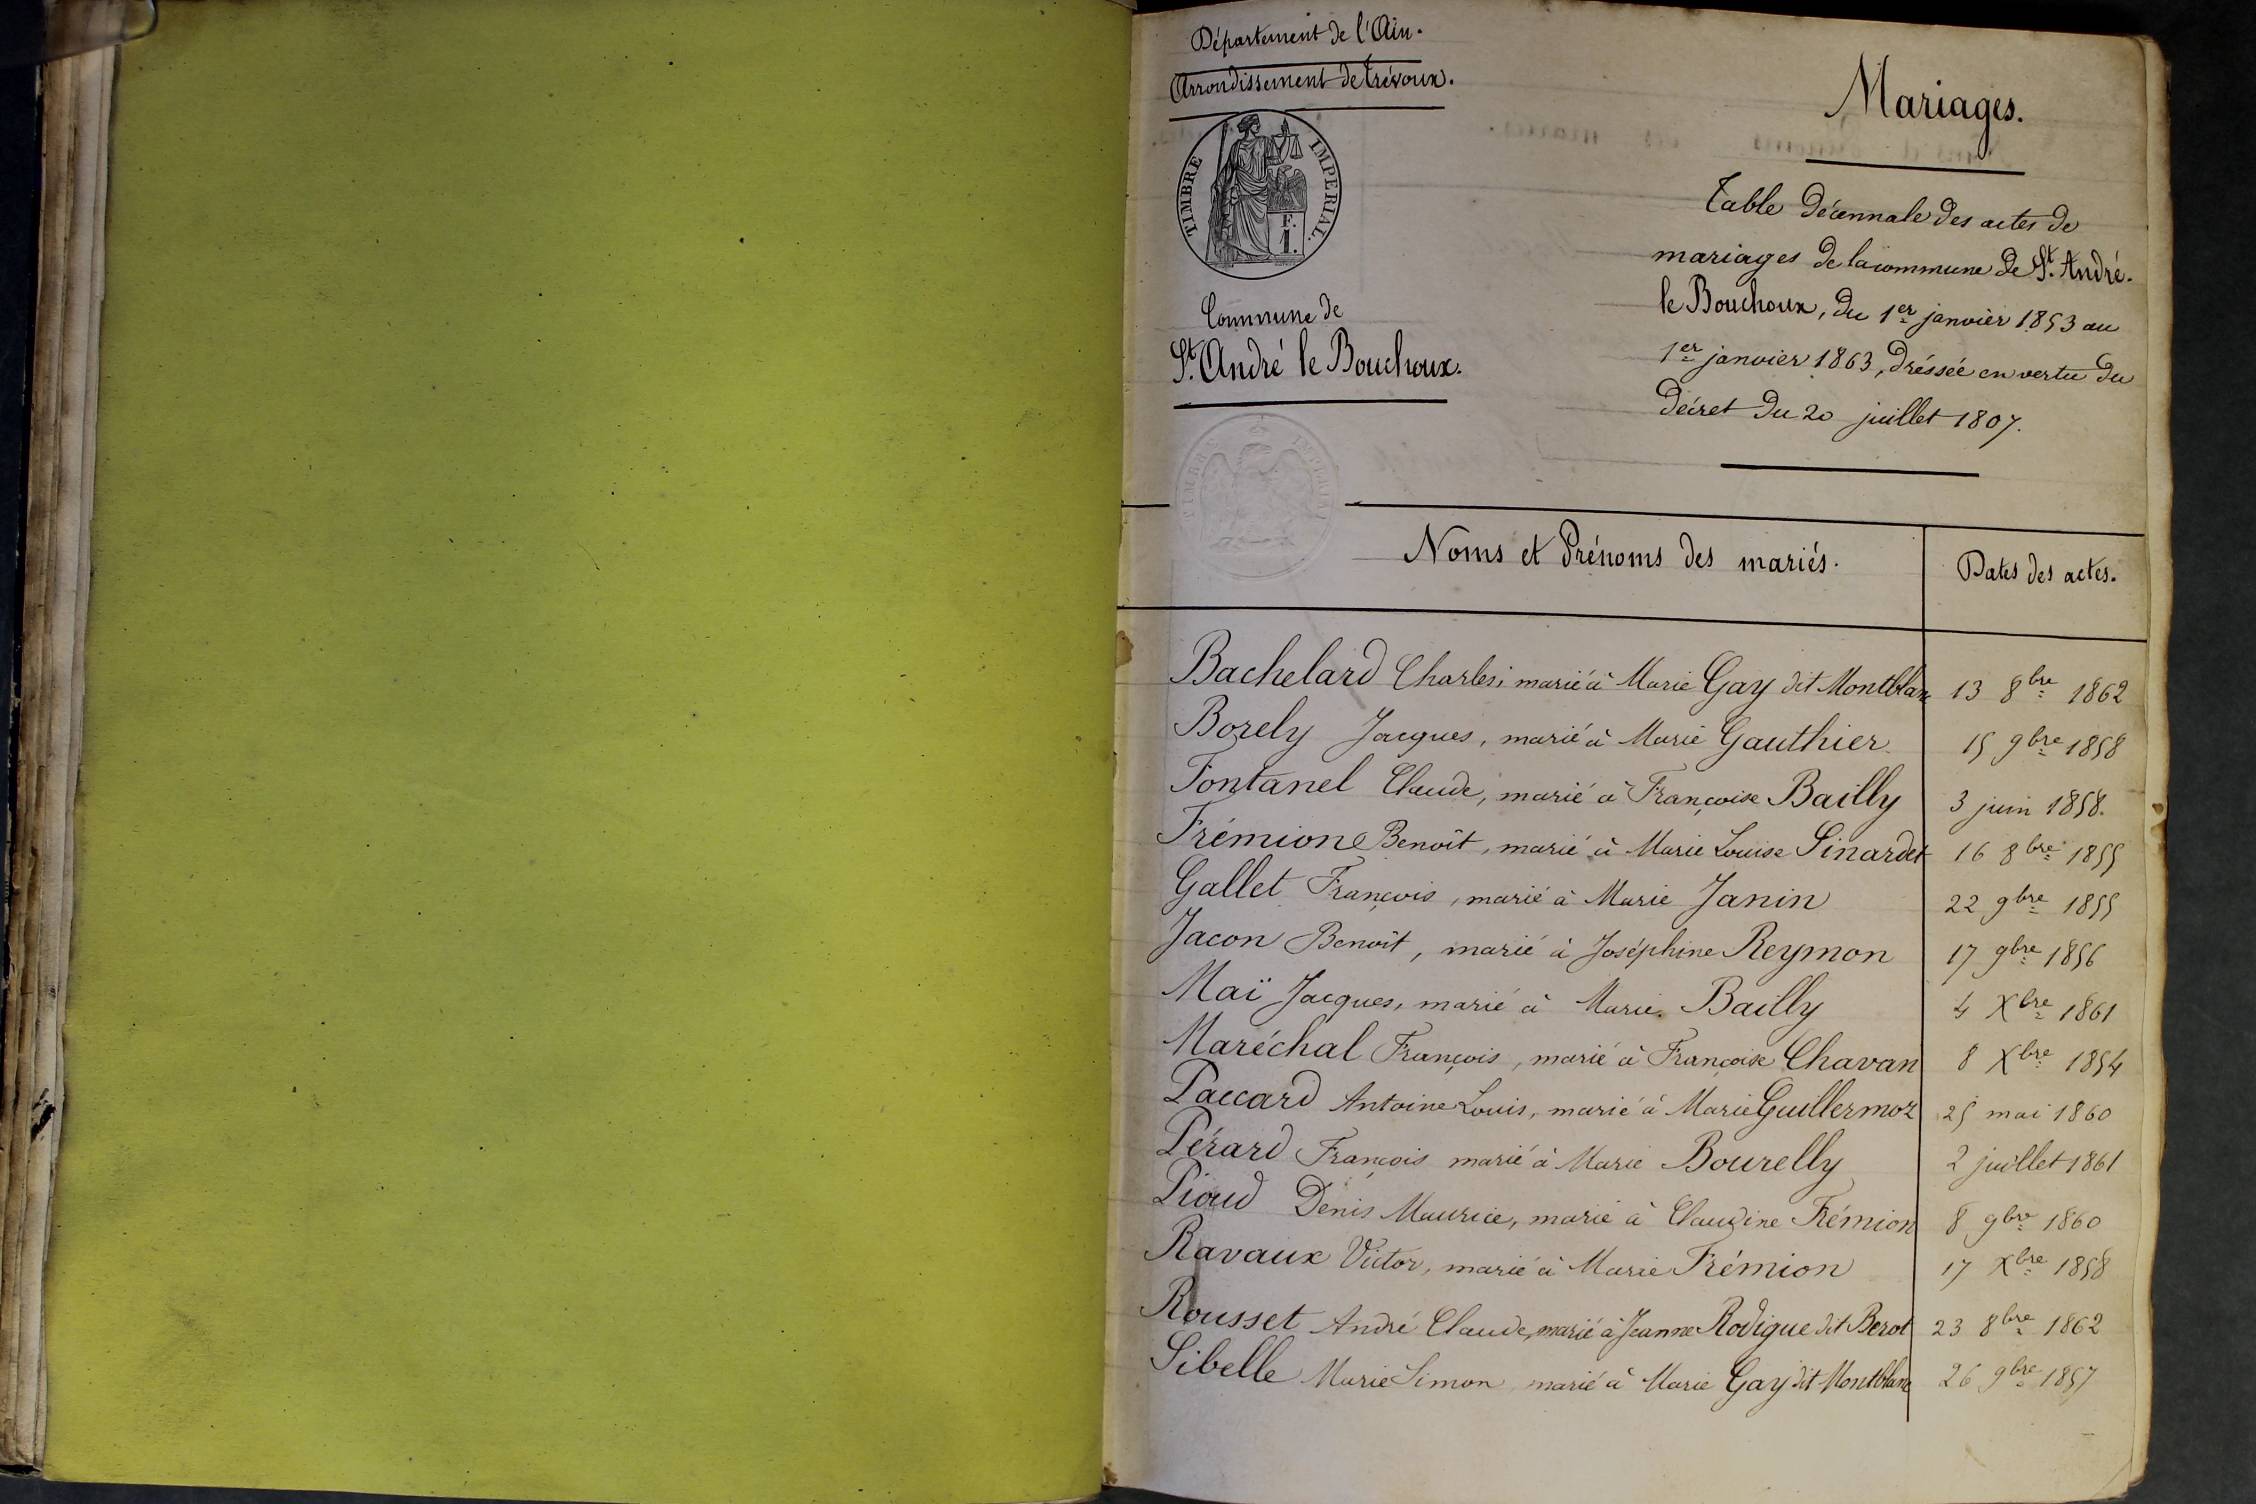 Département de l'Ain.
Arrondissement de Trévoux.
TIMBRE IMPERIAL.
F.
1.
Commune de
St. André le Bouchoux.
TIMBRE IMPERIAL
Mariages.
Table décennale des actes de
mariages de la commune de St. André-
le Bouchoux, du 1er janvier 1853 au
1er janvier 1863, dréssée en vertu du
décret du 20 juillet 1807.
Noms et Prénoms des mariés. Dates des actes.
Bachelard Charles, marié à Marie Gay dit Montblanc 13 8bre 1862
Borely Jacques, marié à Marie Gauthier 15 9bre 1858
Fontanel Claude, marié à Françoise Bailly 3 juin 1858.
Frémion Benoît, marié à Marie Louise Sinardet 16 8bre 1855
Gallet François, marié à Marie Janin 22 9bre 1855
Jacon Benoît, marié à Joséphine Reymon 17 9bre 1856
Maï Jacques, marié à Marie Bailly 4 Xbre 1861
Maréchal François, marié à Françoise Chavan 8 Xbre 1854
Paccard Antoine Louis, marié à Marie Guillermoz 25 mai 1860
Pérard François marié à Marie Bourelly 2 juillet 1861
Pioud Denis Maurice, marié à Claudine Frémion 8 9bre 1860
Ravaux Victor, marié à Marie Frémion 17 Xbre 1858
Rousset André Claude, marié à Jeanne Rodigue dit Berot 23 8bre 1862
Sibelle Marie Simon marié à Marie Gay dit Montblanc 26 9bre 1857